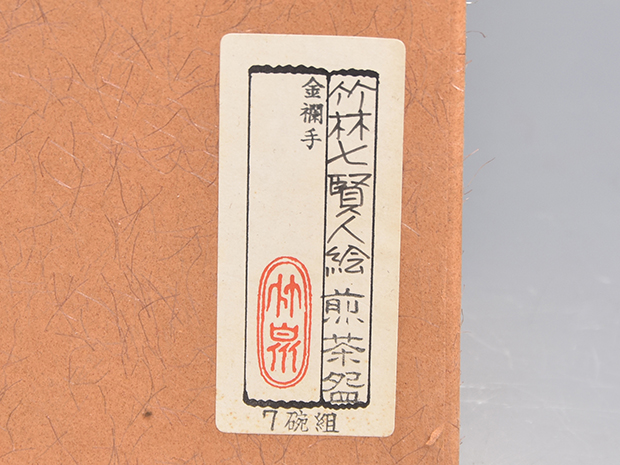 竹林七賢人絵 煎茶盌
金襴手
竹泉
7碗組